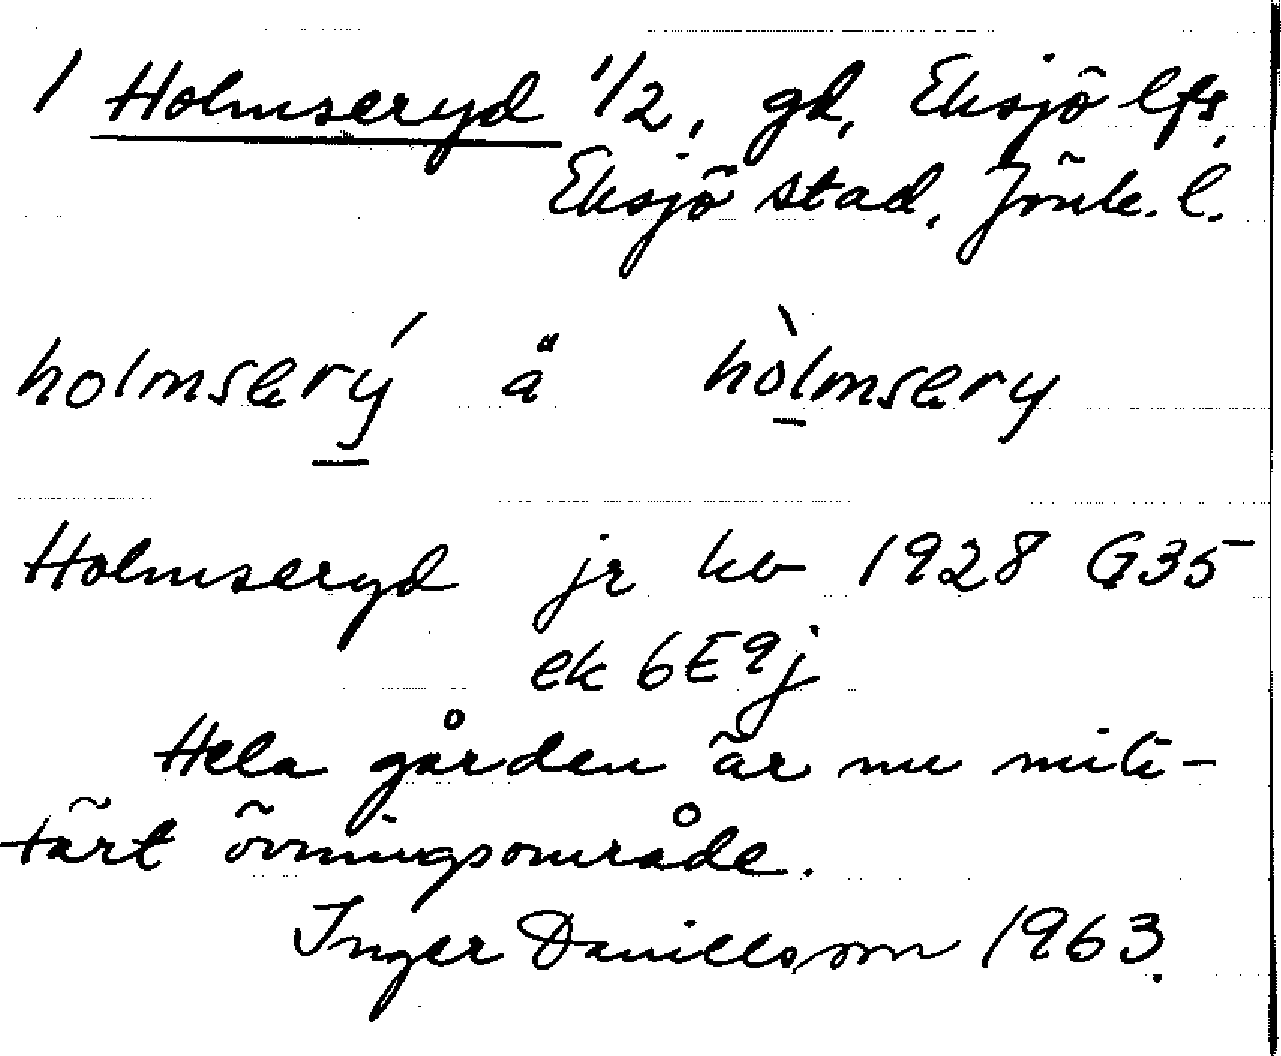 1 Holmseryd 1/2, gd, Eksjö lfs,
Eksjö stad, Jönk. l.
holmserý ä hòlmsery
Holmseryd jr kb 1928 G35
ek 6E9j
Hela gården är nu mili-
tärt övningsområde.
Inger Danielsson 1963.